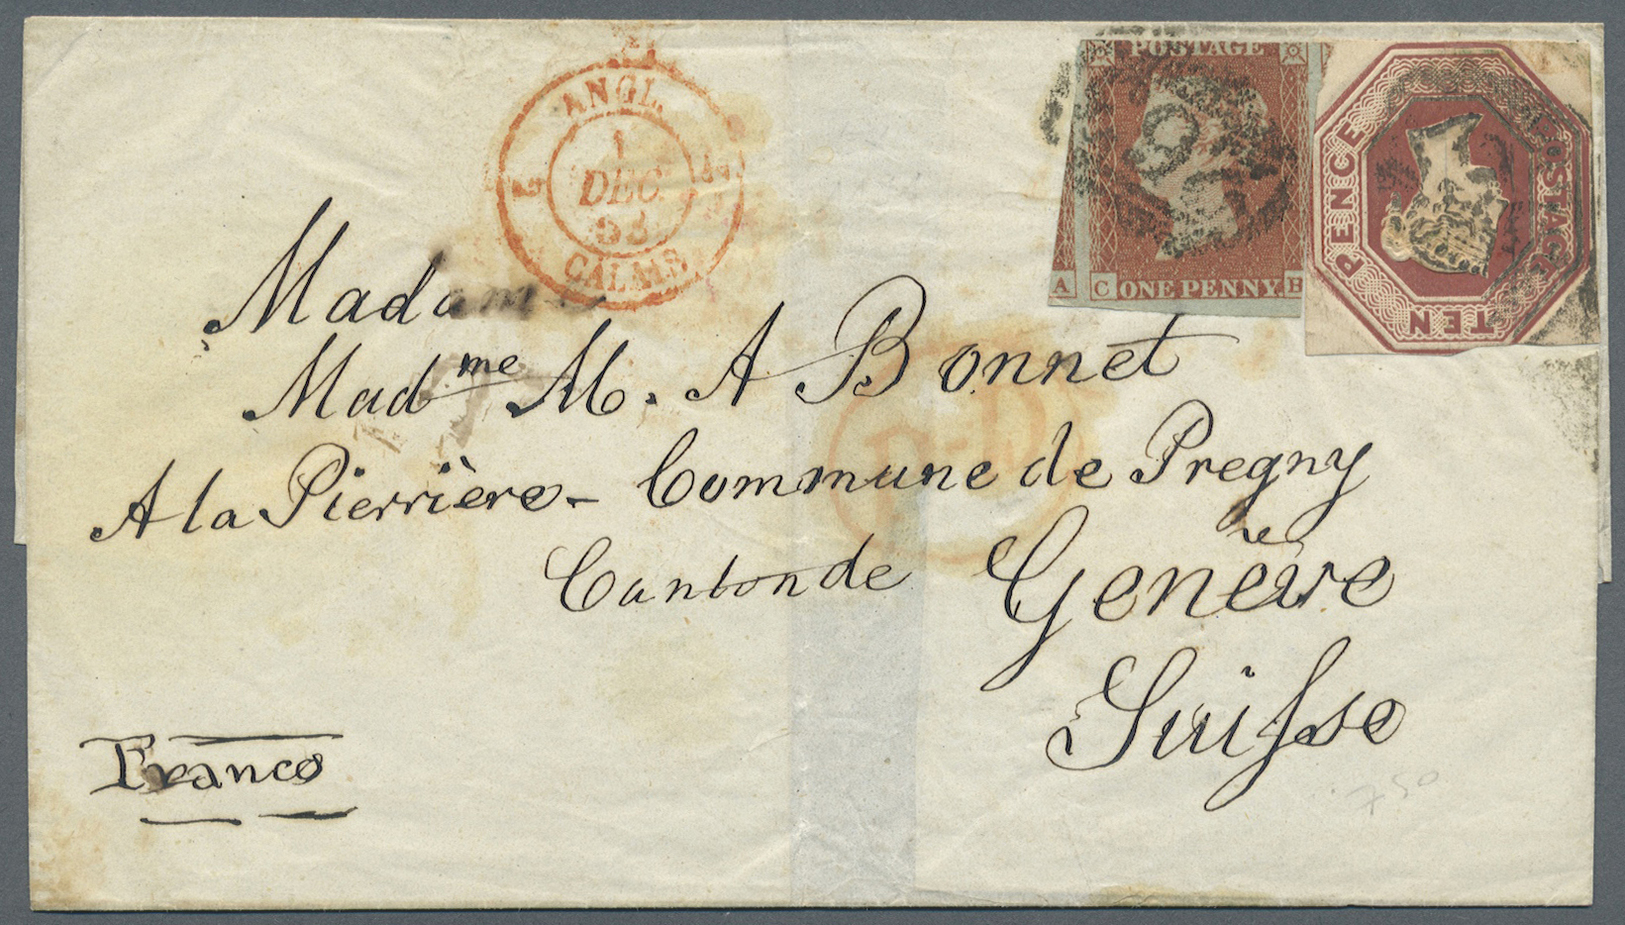 ANGL.
1
DEC.
53
CALAIS
POSTAGE
A
C ONE PENNY. B
POSTAGE
TEN
PENCE
Madame
Mad^me M. A Bonnet
A la Pierrière - Commune de Pregny
Canton de Genève
Suisse
Franco
P.D.
750